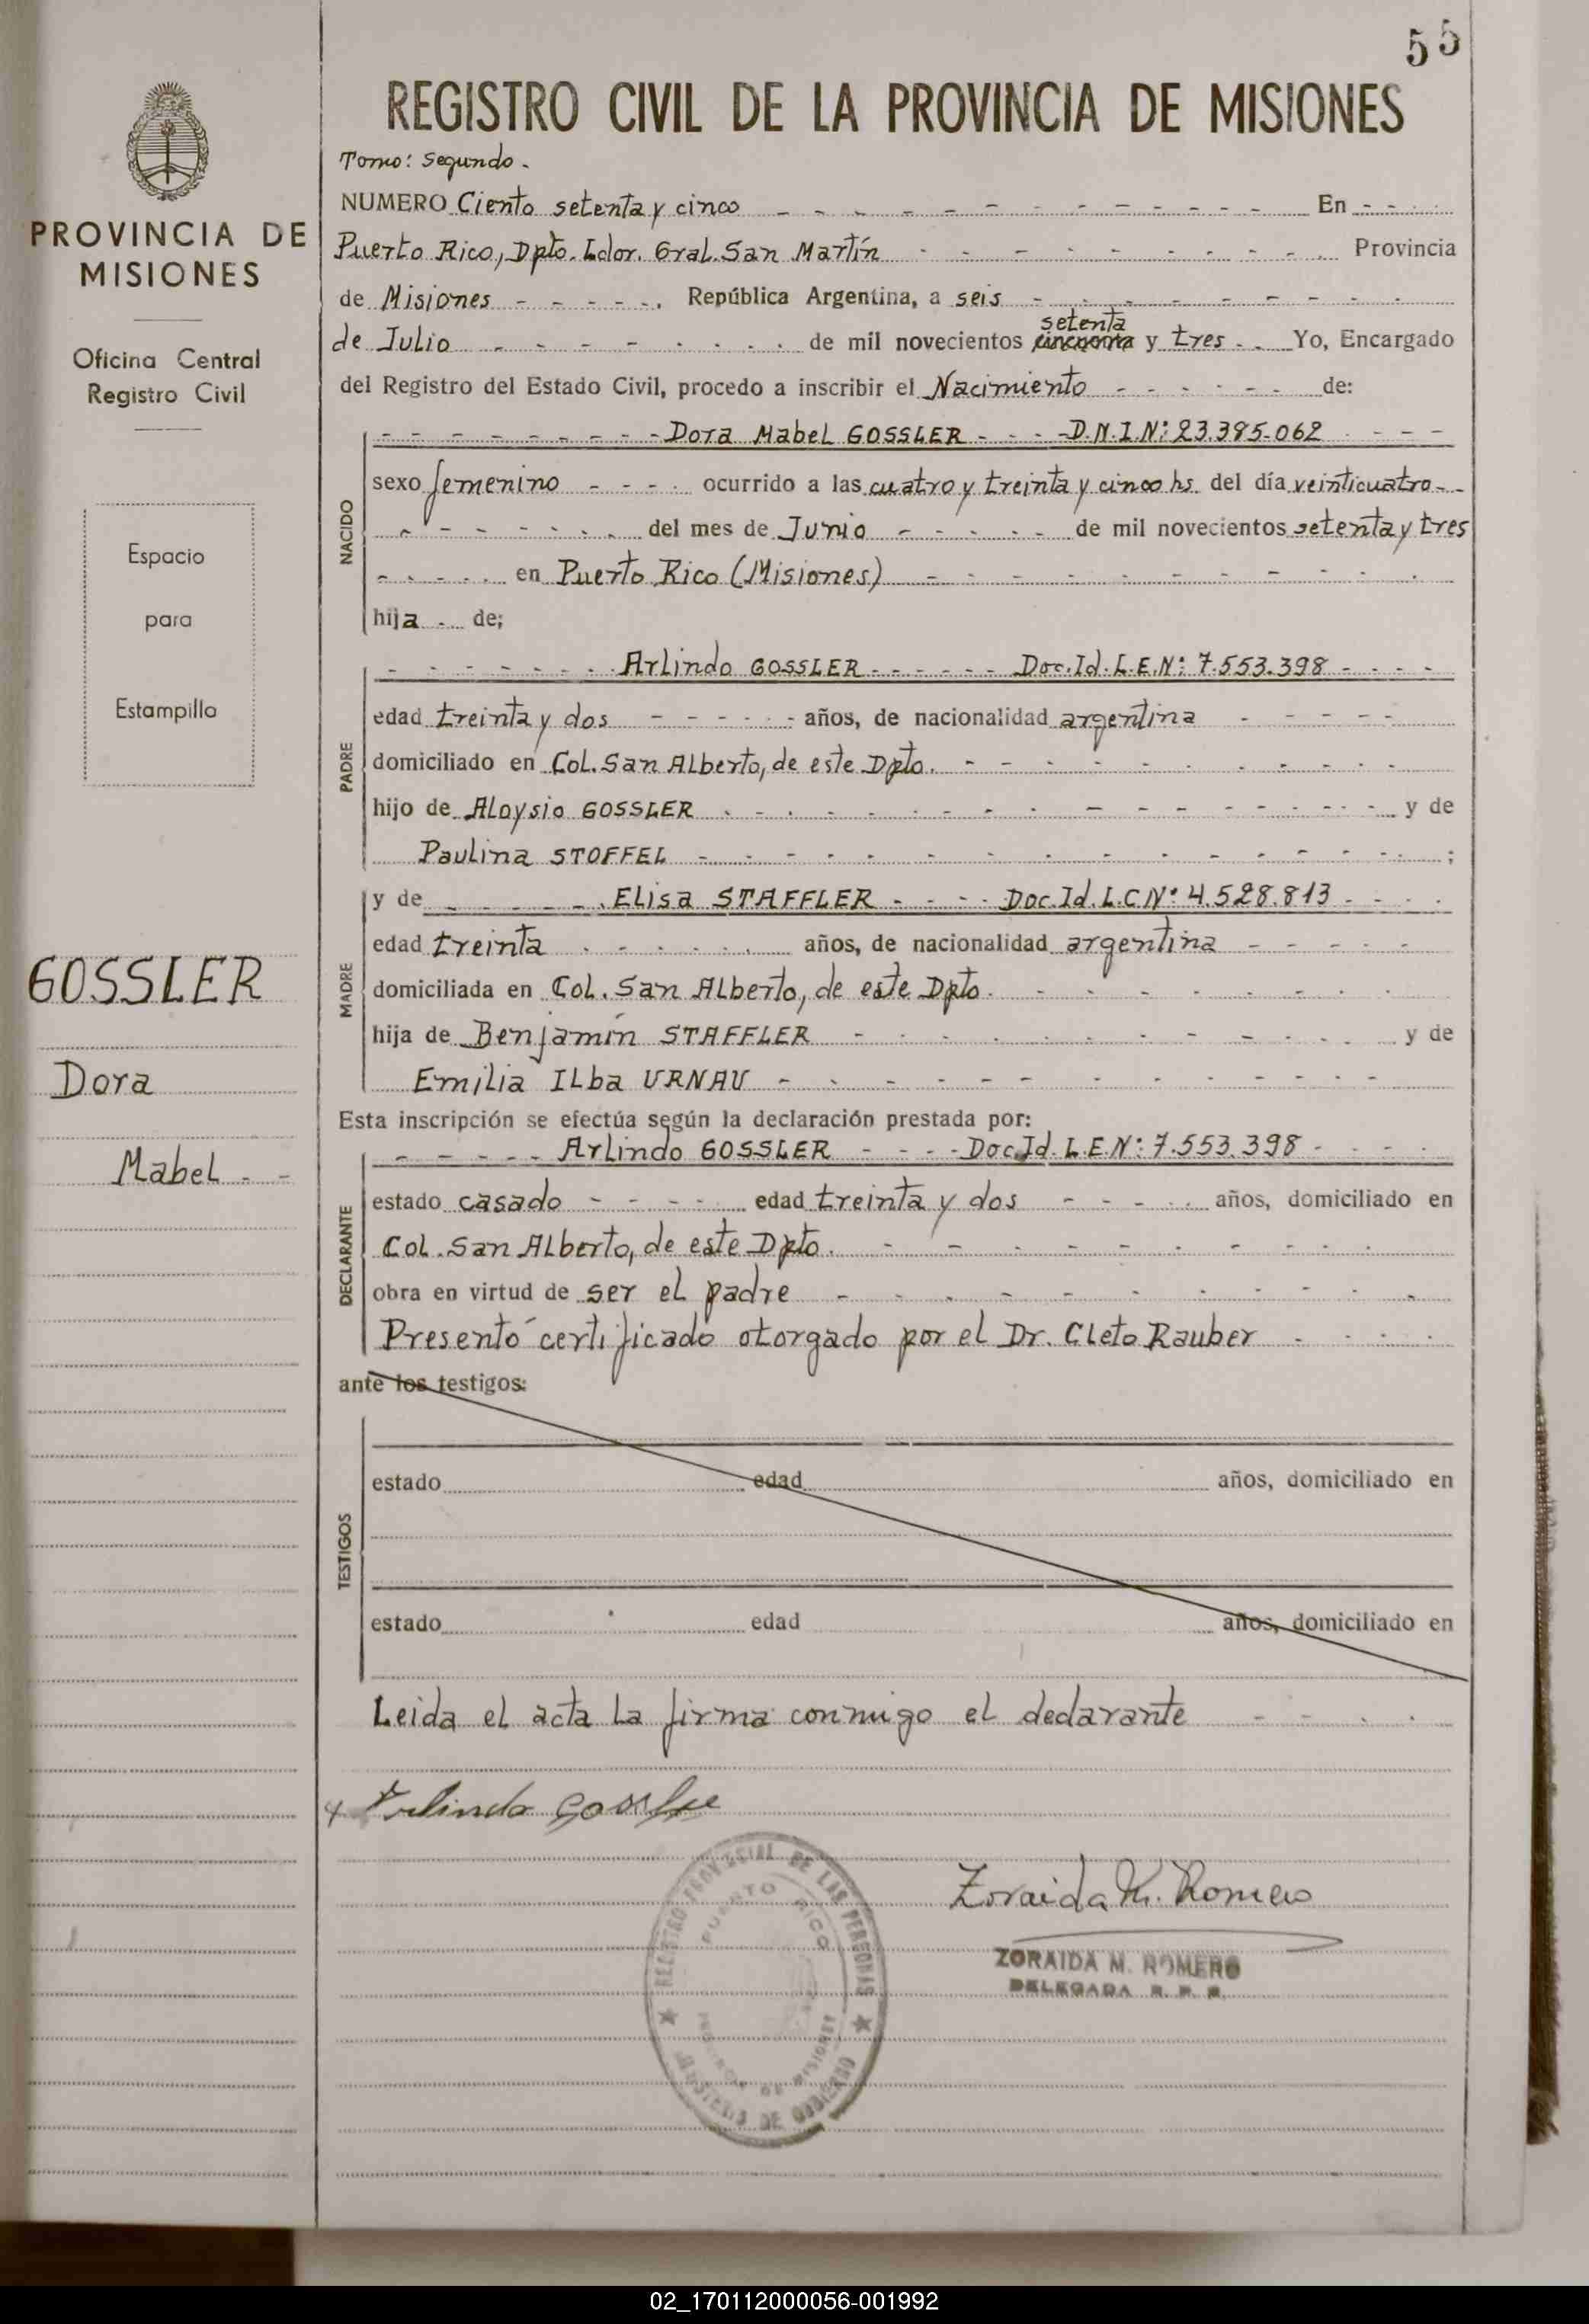 55
REGISTRO CIVIL DE LA PROVINCIA DE MISIONES
PROVINCIA DE
MISIONES
Oficina Central
Registro Civil
Espacio
para
Estampilla
GOSSLER
Dora
Mabel
Tomo: Segundo.
NUMERO Ciento setenta y cinco En
Puerto Rico, Dpto. Ldor. Gral. San Martín Provincia
de Misiones República Argentina, a seis
setenta
de Julio de mil novecientos cincuenta y tres Yo, Encargado
del Registro del Estado Civil, procedo a inscribir el Nacimiento de:
NACIDO
Dora Mabel GOSSLER - D.N.I.Nº: 23.385.062
sexo femenino ocurrido a las cuatro y treinta y cinco hs. del día veinticuatro
del mes de Junio de mil novecientos setenta y tres
en Puerto Rico (Misiones)
hija de;
PADRE
Arlindo GOSSLER Doc. Id. L.E.Nº: 7.553.398
edad treinta y dos años, de nacionalidad argentina
domiciliado en Col. San Alberto, de este Dpto.
hijo de Aloysio GOSSLER y de
Paulina STOFFEL ;
MADRE
y de Elisa STAFFLER Doc. Id. L.C Nº 4.528.813
edad treinta años, de nacionalidad argentina
domiciliada en Col. San Alberto, de este Dpto.
hija de Benjamín STAFFLER y de
Emilia Ilba URNAU
Esta inscripción se efectúa según la declaración prestada por:
DECLARANTE
Arlindo GOSSLER Doc. Id. L.E.Nº: 7.553.398
estado casado edad treinta y dos años, domiciliado en
Col. San Alberto, de este Dpto.
obra en virtud de ser el padre
Presentó certificado otorgado por el Dr. Cleto Rauber
ante los testigos:
TESTIGOS
estado edad años, domiciliado en
estado edad años, domiciliado en
Leida el acta la firma conmigo el declarante
Arlindo Gossler
REGISTRO PROVINCIAL DE LAS PERSONAS
PUERTO RICO
DE MISIONES
DE GOBIERNO
Zoraida M. Romero
ZORAIDA M. ROMERO
DELEGADA R. P. P.
02_170112000056-001992